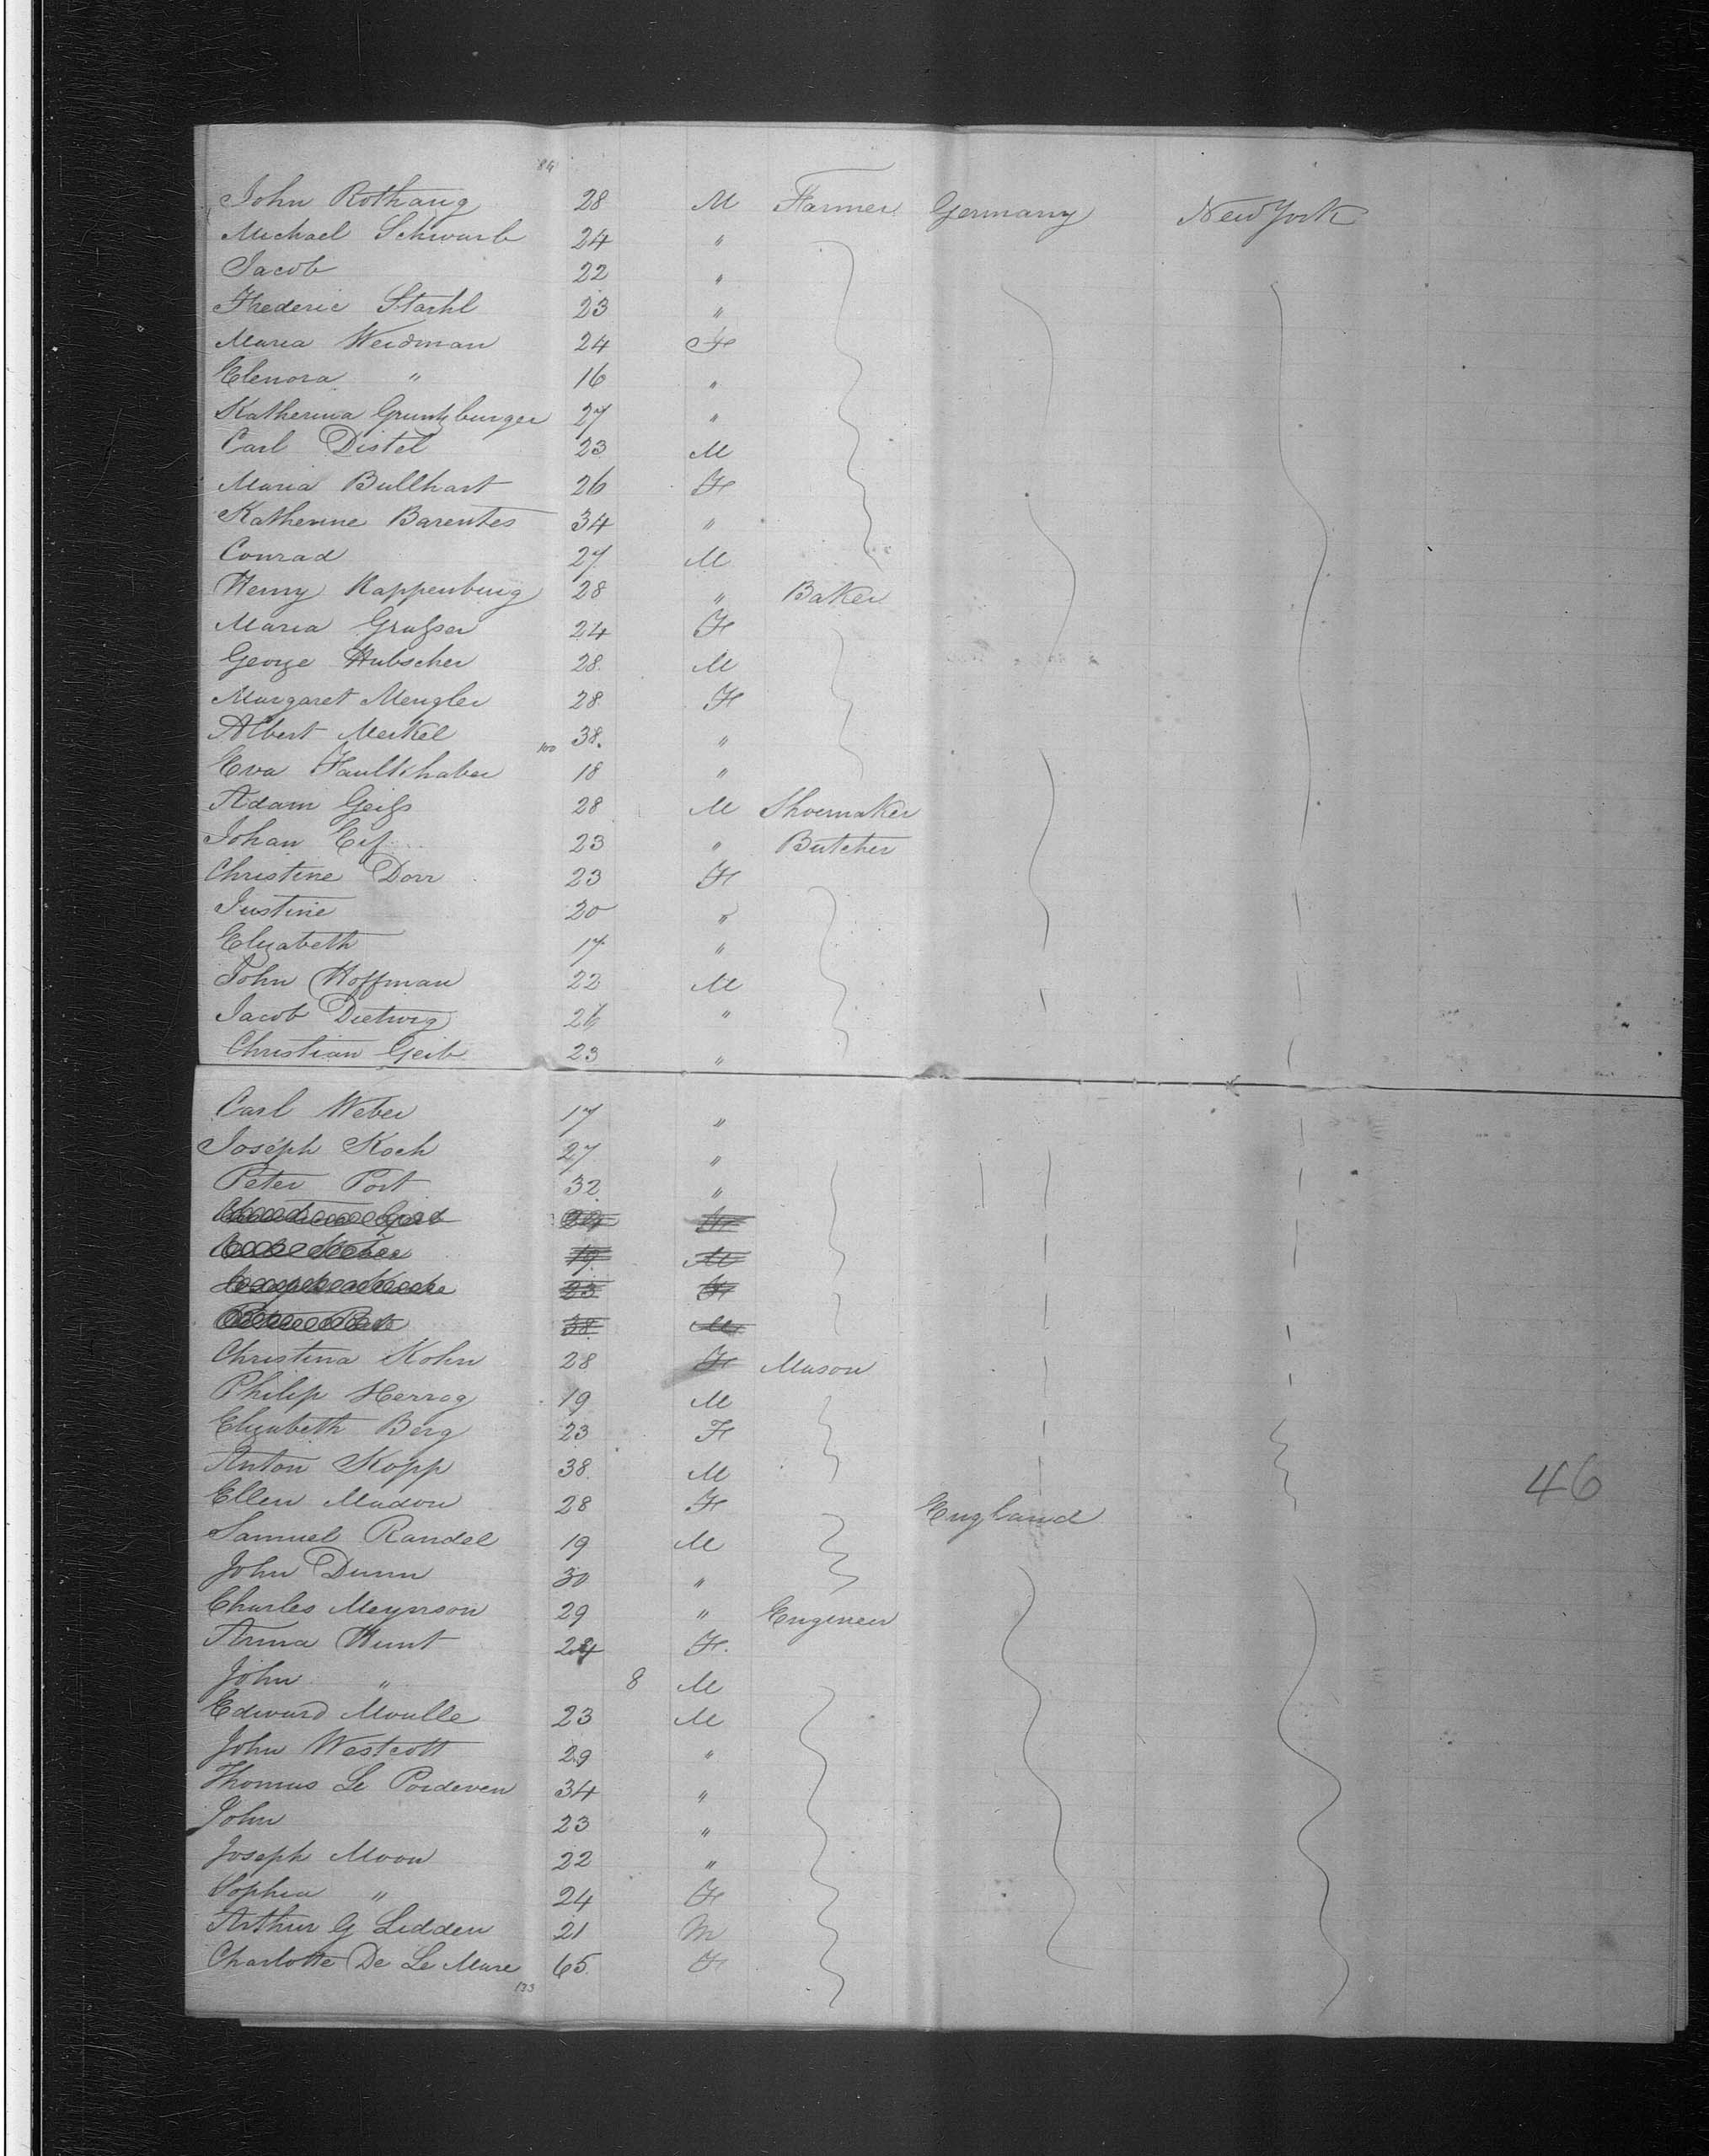 84
John Rothaug 28 M Farmer Germany New York
Michael Schwarb 24 "
Jacob 22 "
Frederic Stachl 23 "
Maria Weidman 24 F
Elenora " 16 "
Katherina Gruntzburger 27 "
Carl Distel 23 M
Maria Bullhart 26 F
Katherine Barentes 34 "
Conrad 27 M
Henry Rappenburg 28 " Baker
Maria Grasser 24 F
George Hubscher 28 M
Margaret Mengler 28 F
Albert Merkel 38. "
100
Eva Faulkhaber 18 "
Adam Geiss 28 M Shoemaker
Johan Eif 23 " Butcher
Christine Dorr 23 F
Justine 20 "
Elizabeth 17 "
John Hoffman 22 M
Jacob Dietwig 26 "
Christian Geib 23 "
Carl Weber 17 "
Joseph Koch 27 "
Peter Port 32 "
24 F
19 M
23 F
38 M
Christina Kohn 28 F Mason
Philip Herzog 19 M
Elizabeth Berg 23 F
Anton Kopp 38 M
46
Ellen Madon 28 F England
Samuel Randel 19 M
John Dunn 30 "
Charles Meynson 29 " Engineer
Anna Hunt 24 F.
John " 8 M
Edward Moulle 23 M
John Westcott 29 "
Thomas Le Poideven 34 "
John 23 "
Joseph Moon 22 "
Sophia " 24 F
Arthur G Ledden 21 M
Charlotte De Le Mare 65 F
133